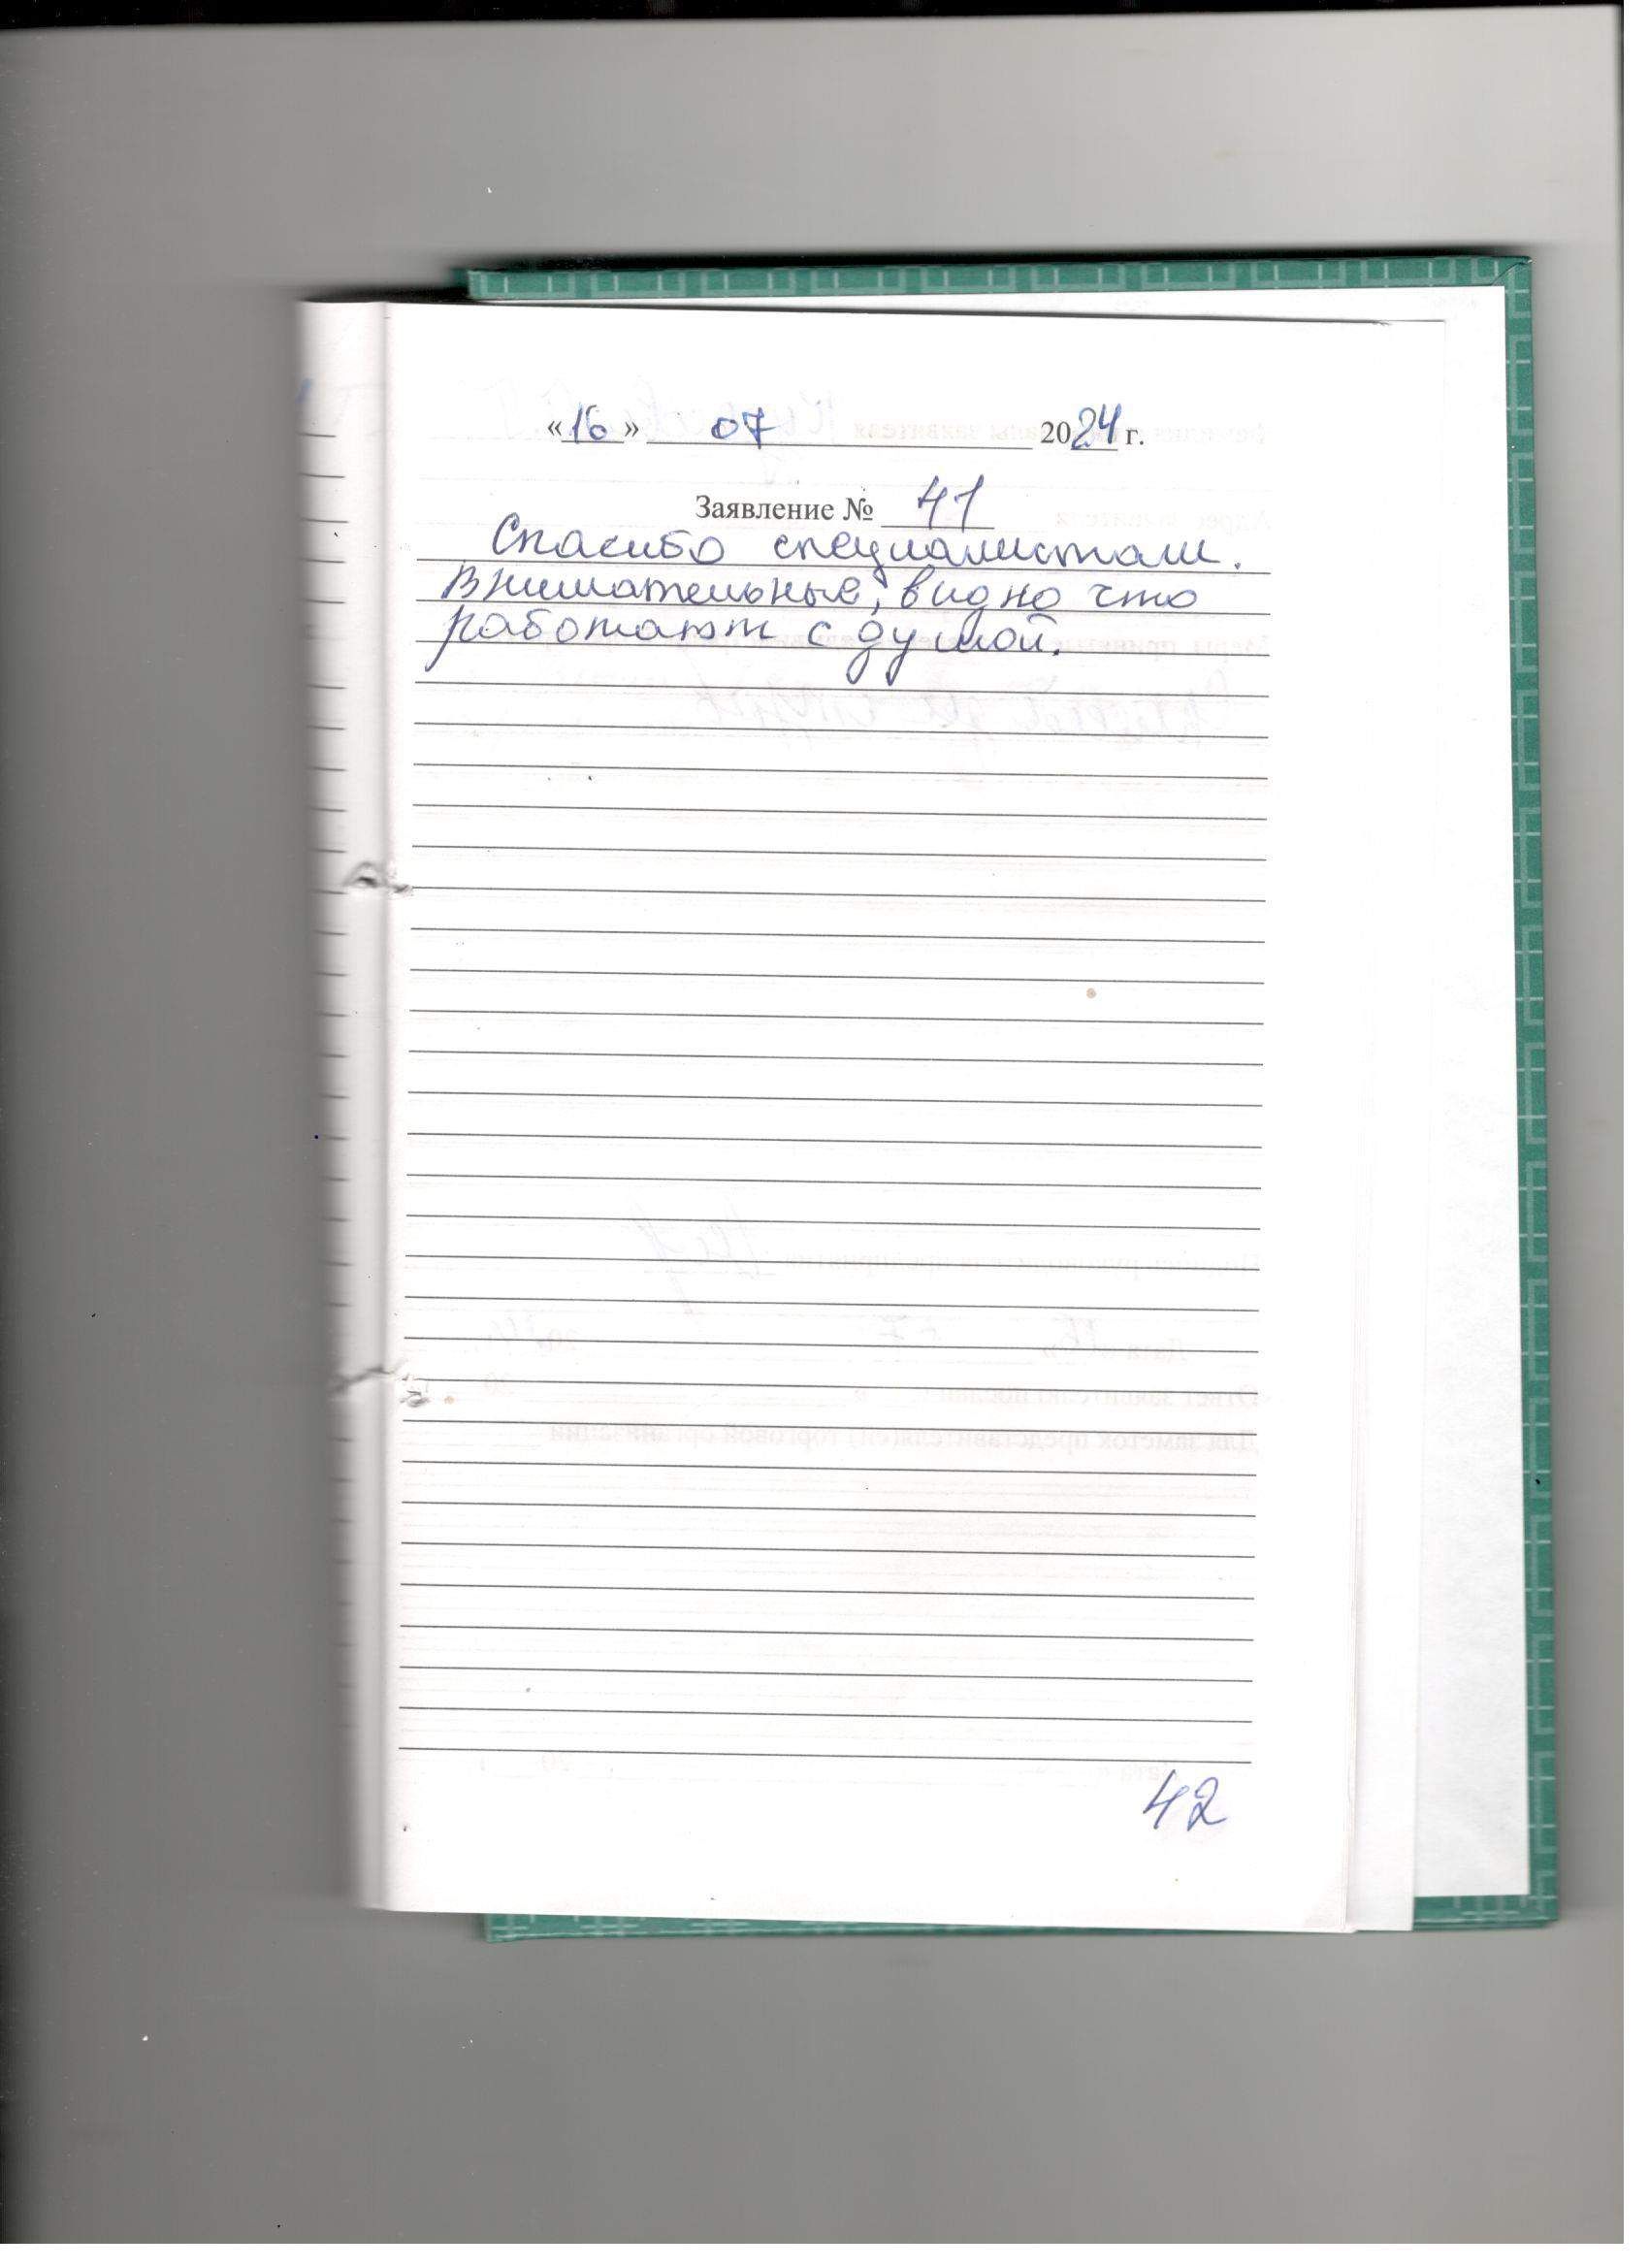 «16» 07 2024 г.
Заявление № 41
Спасибо специалистам.
Внимательные, видно что
работают с душой.
42